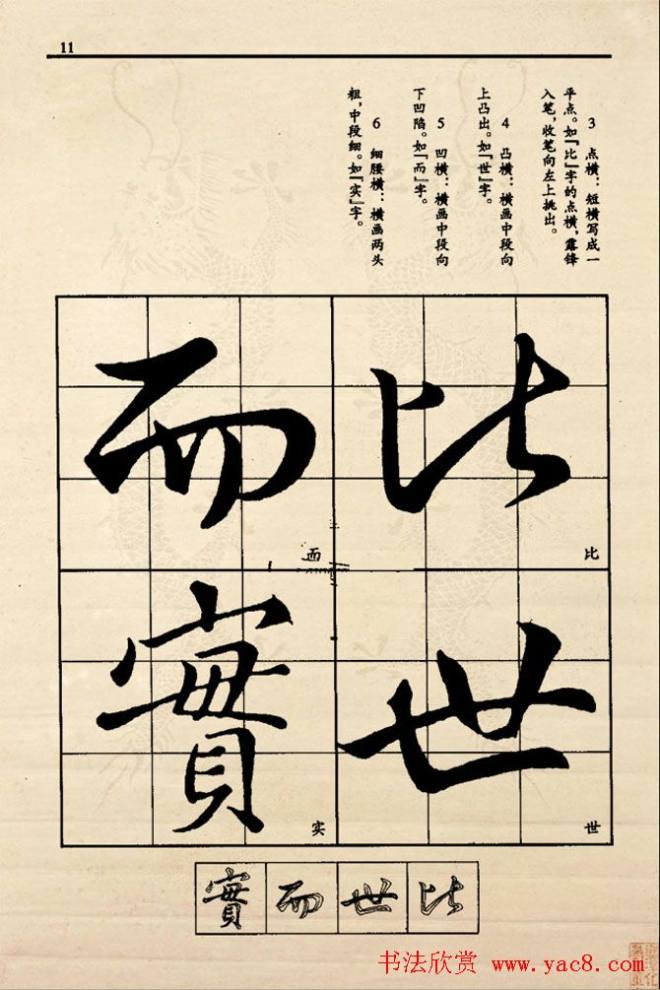 11
3 点横：短横写成一
平点。如『比』字的点横，露锋
入笔，收笔向左上挑出。
4 凸横：横画中段向
上凸出。如『世』字。
5 凹横：横画中段向
下凹陷。如『而』字。
6 细腰横：横画两头
粗，中段细。如『实』字。
比
比
世
世
而
而
實
实
實而世比
书法欣赏 www.yac8.com